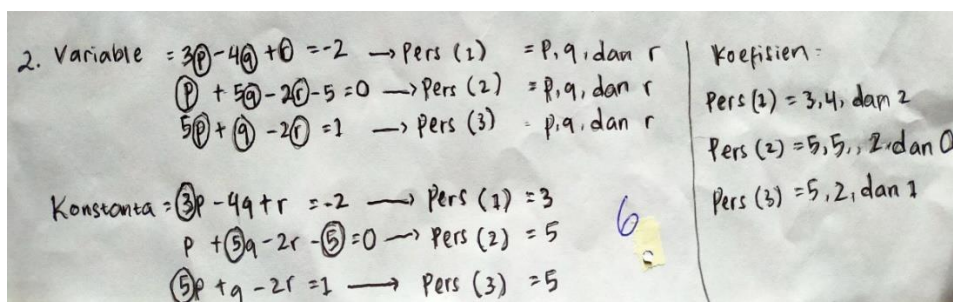 2. Variable = 3p - 4q + r = -2 → Pers (1) = p, q, dan r
p + 5q - 2r - 5 = 0 → Pers (2) = p, q, dan r
5p + q - 2r = 1 → Pers (3) = p, q, dan r
Konstanta = 3p - 4q + r = -2 → Pers (1) = 3
p + 5q - 2r - 5 = 0 → Pers (2) = 5
5p + q - 2r = 1 → Pers (3) = 5
6
Koefisien =
Pers (1) = 3, 4, dan 2
Pers (2) = 5, 5,, 2, dan 0
Pers (3) = 5, 2, dan 1